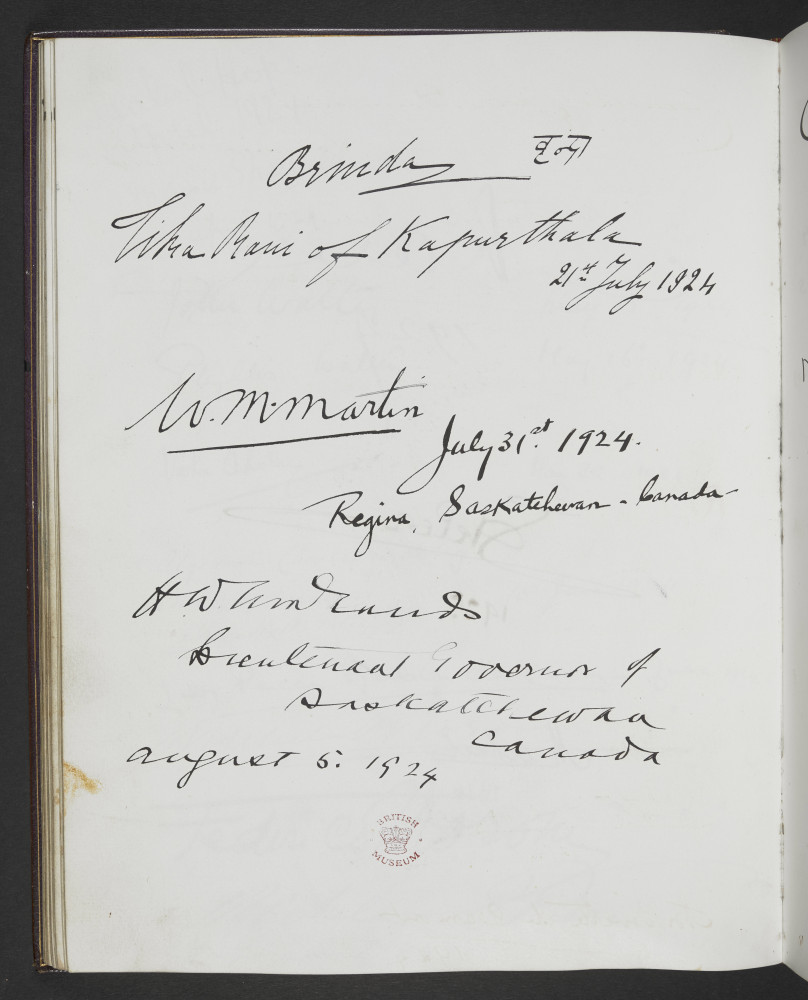 Brinda वृन्दा
Tika Rani of Kapurthala
21st July 1924
W. M. Martin
July 31st. 1924.
Regina, Saskatchewan - Canada
H W
Lieutenant Governor of
Saskatchewan
Canada
august 5. 1924
BRITISH
MUSEUM